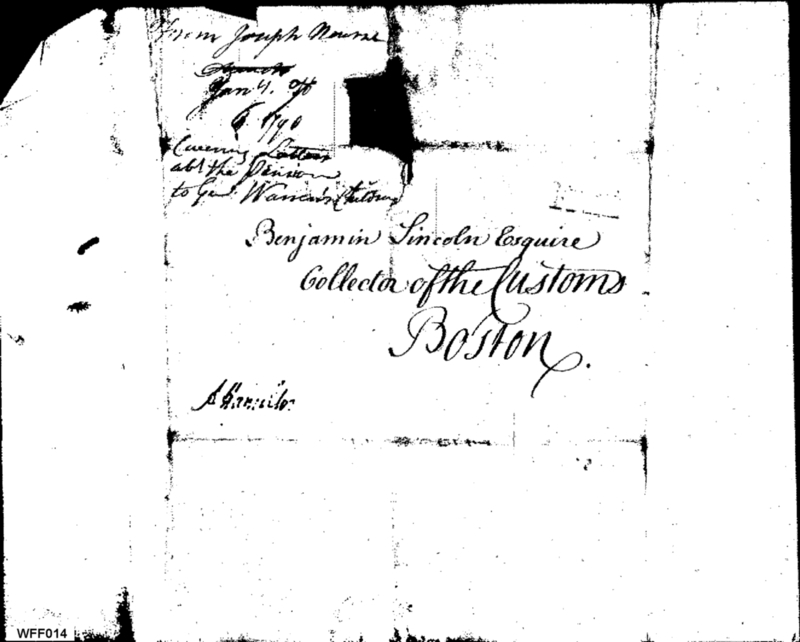 From Joseph Nourse
Jan 4. 90
6. 1790
Covering Letters
abt the Pension
to Genl Warren's Children
Benjamin Lincoln Esquire
Collector of the Customs
Boston.
A Hamilton
WFF014